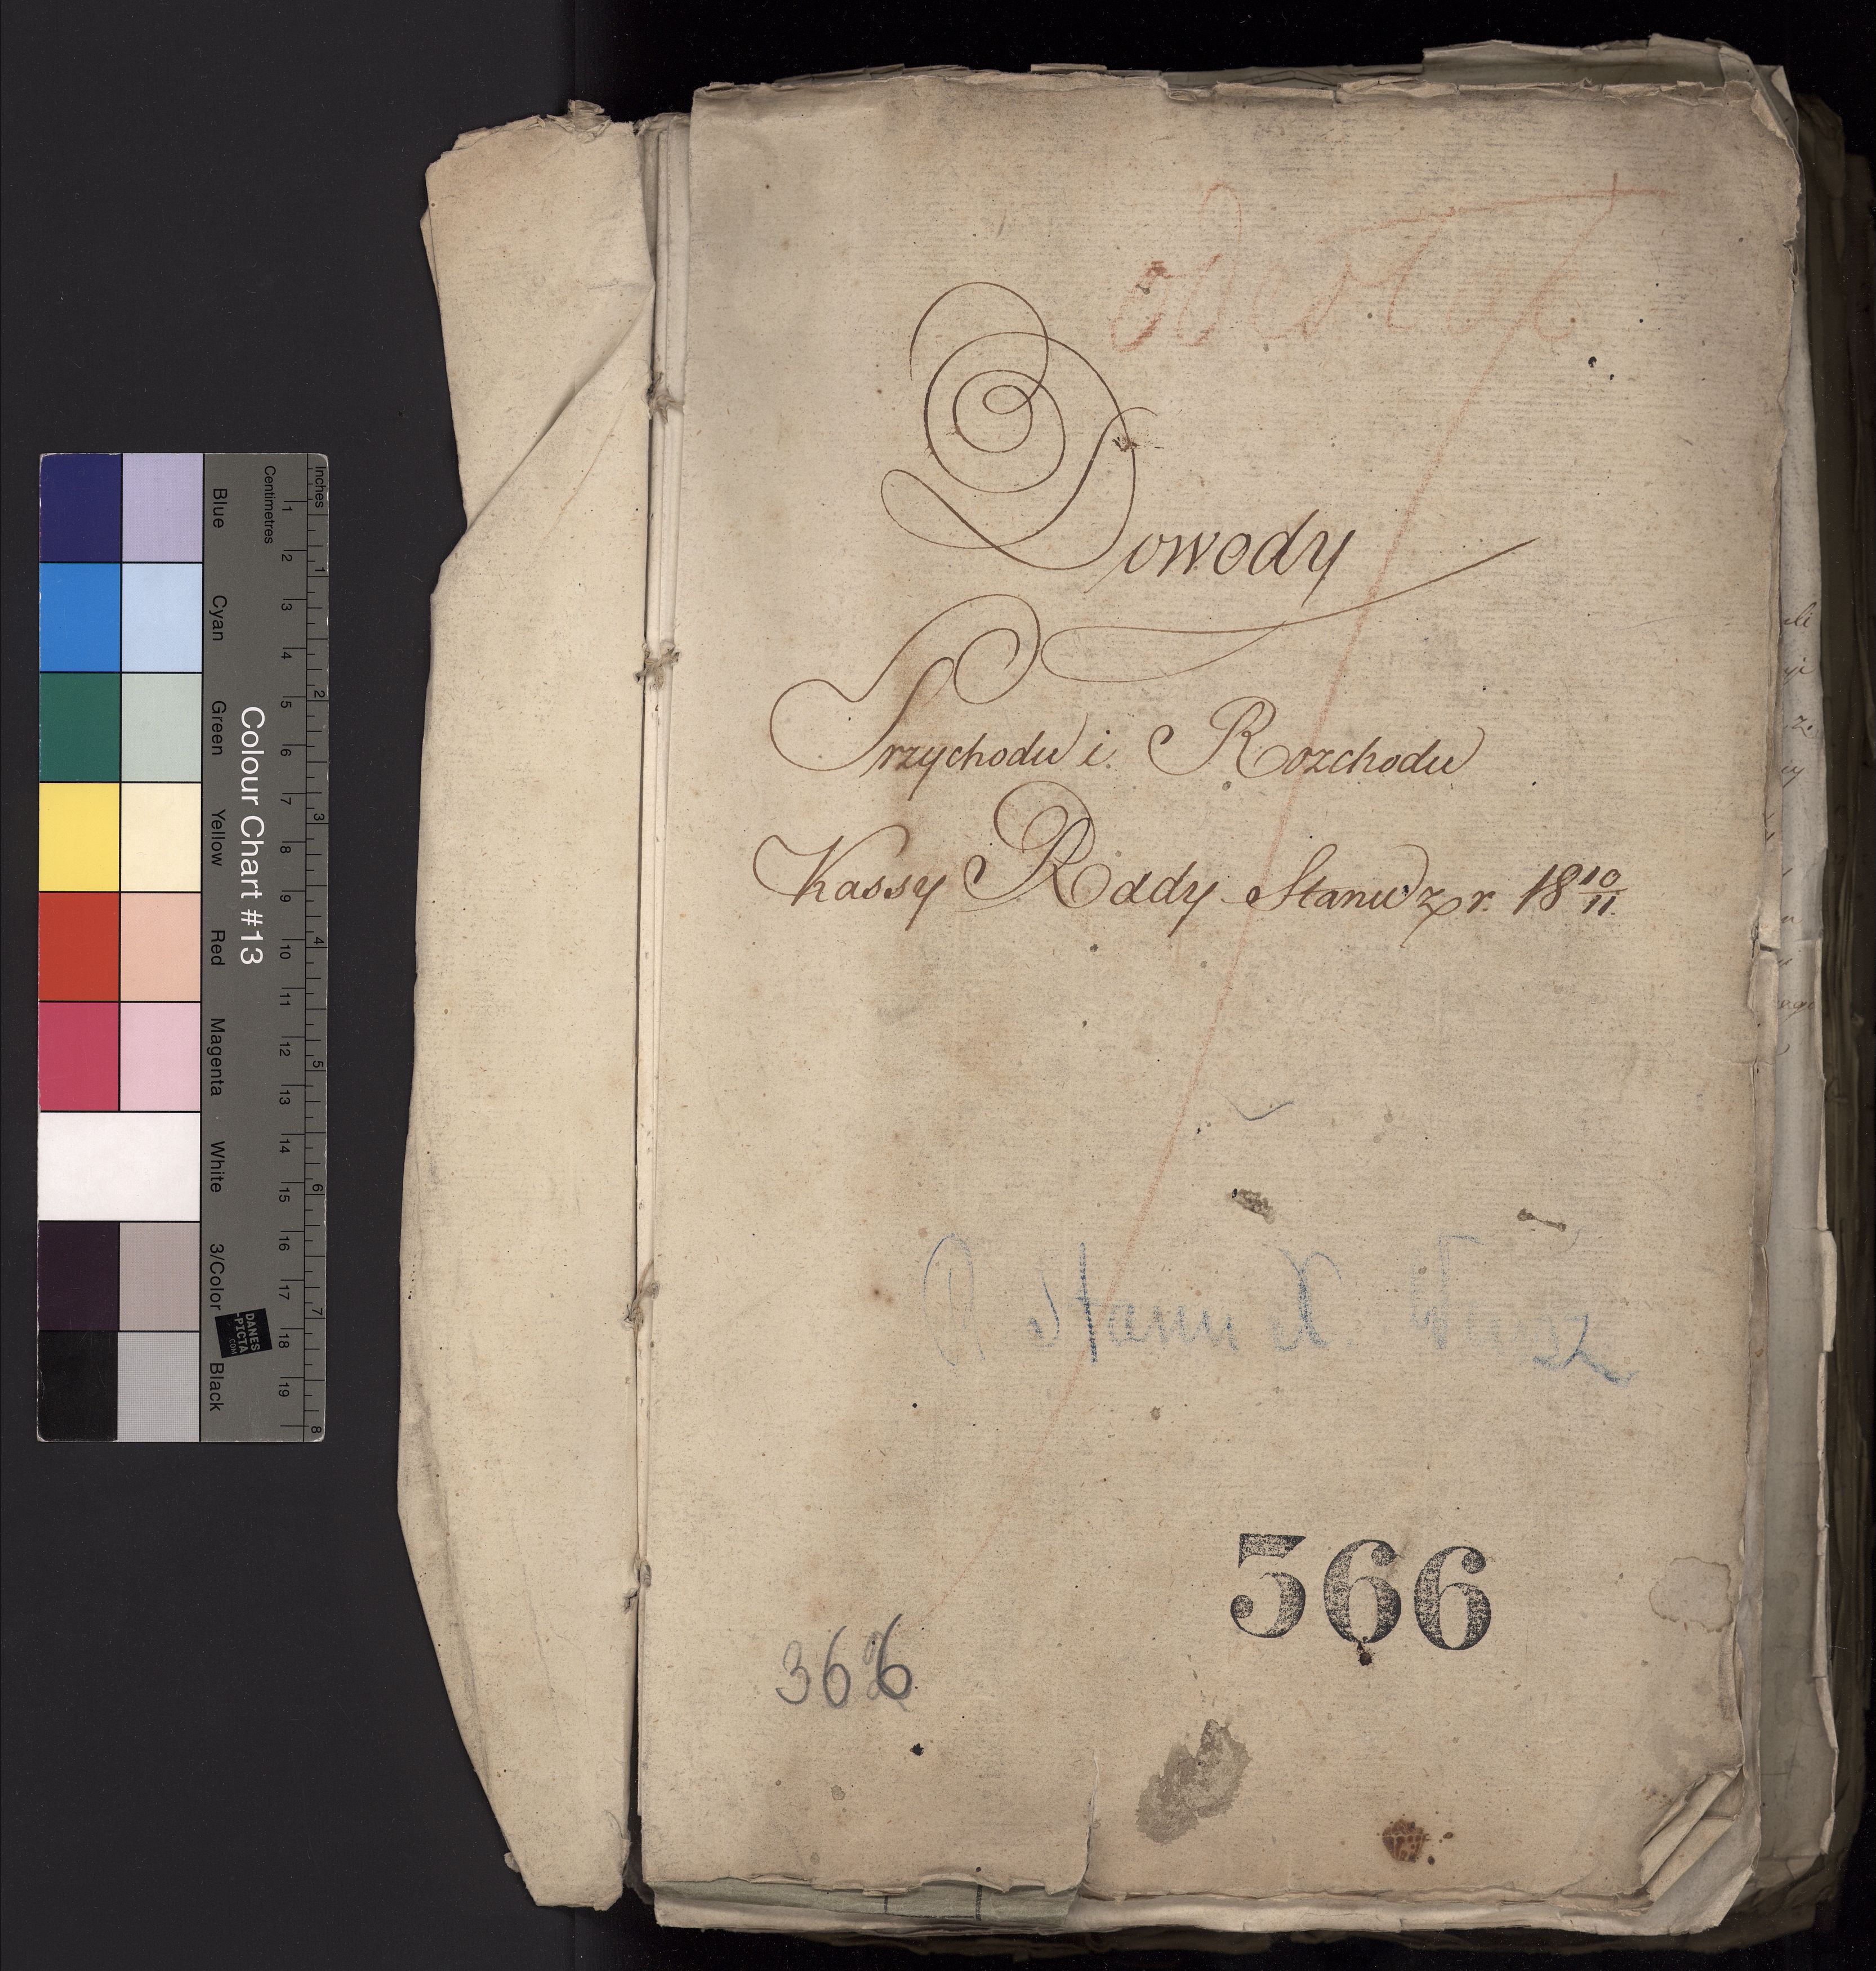 Dowody
Przychodu i Rozchodu
Kassy Rady Stanu z r. 18 10/11.
R Stanu X. Warsz
366
366
Colour Chart #13
Blue
Cyan
Green
Yellow
Red
Magenta
White
3/Color
Black
Centimetres
1 2 3 4 5 6 7 8 9 10 11 12 13 14 15 16 17 18 19
Inches
1 2 3 4 5 6 7 8
DANES
-PICTA
.COM